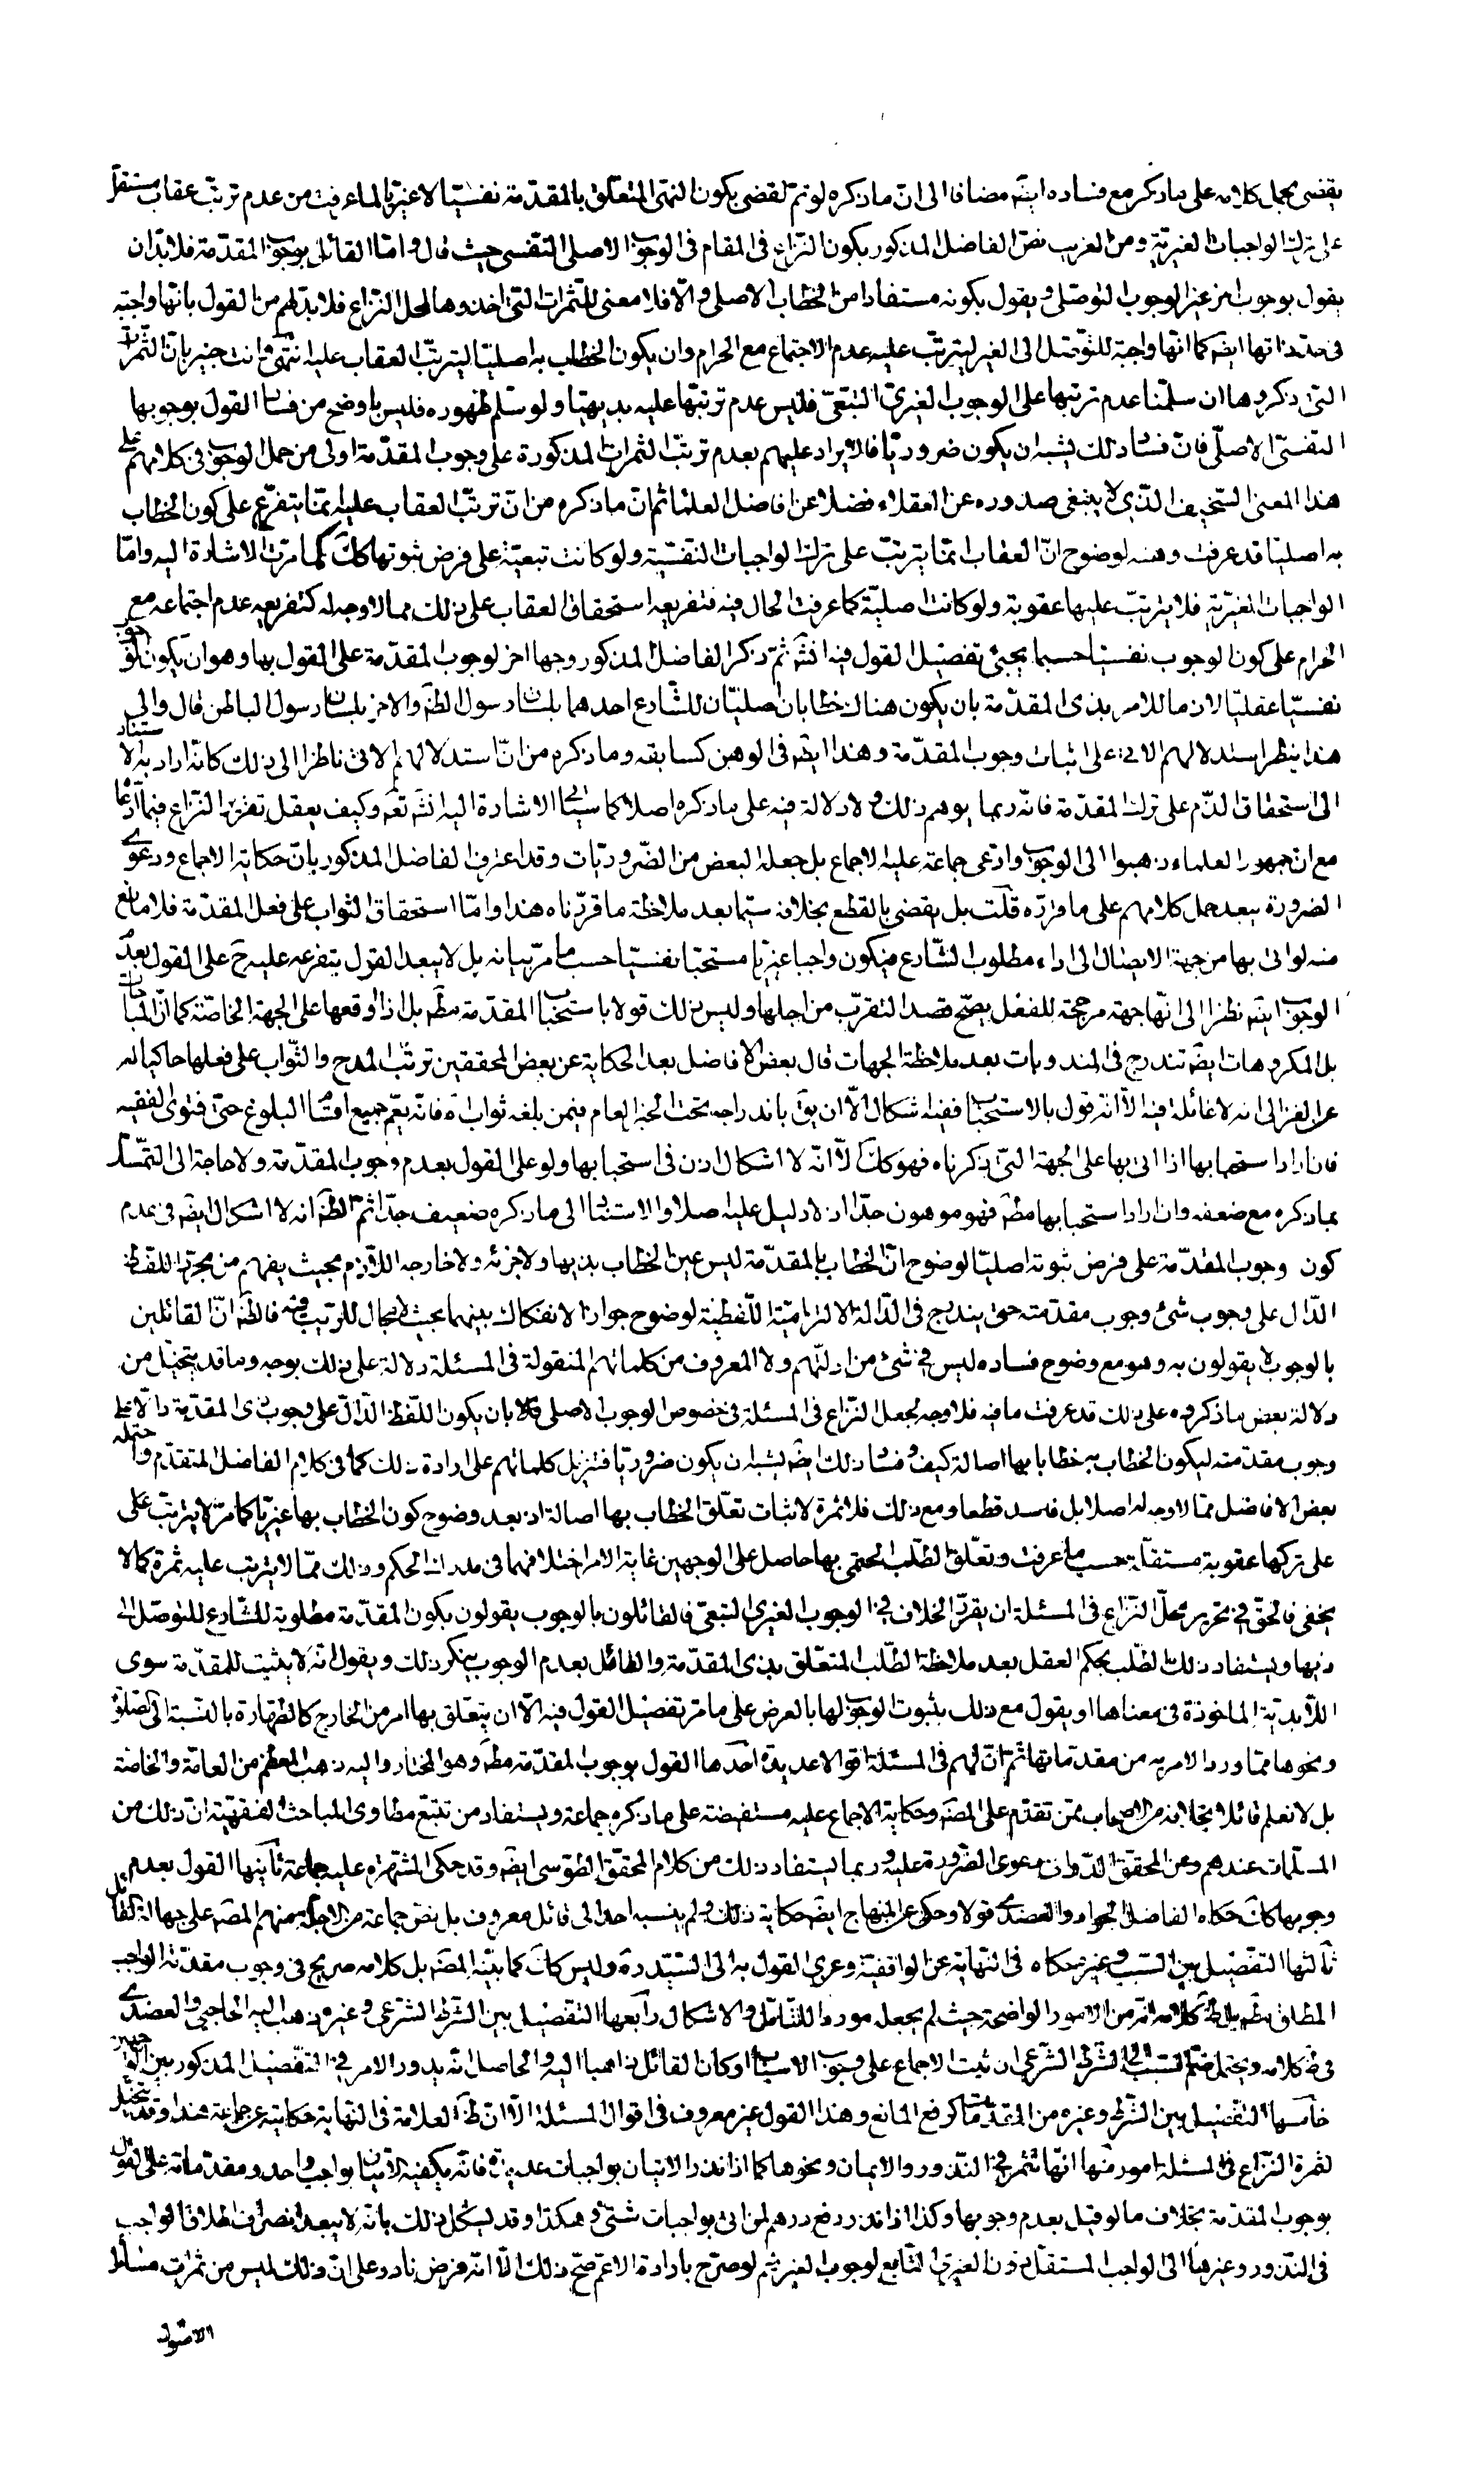 يقضى بحمل كلامه على ما ذكر مع فساده ايضه مضافا الى ان ما ذكره لو تم لقضى بكون النهى المتعلق بالمقدمة نفسيا لا غيريا لما عرفت من عدم ترتب عقاب مستقل
على ترك الواجبات الغيرية ومن الغريب نص الفاضل المذكور بكون النزاع فى المقام فى الوجوب الاصلى النفسى حيث قال واما القائل بوجوب المقدمة فلا بد ان
يقول بوجوب اخر غير الوجوب التوصلى ويقول بكونه مستفادا من الخطاب الاصلى والا فلا معنى للثمرات التى اخذوها لمحل النزاع فلا بد لهم من القول بانها واجبة
فى حد ذاتها ايضه كما انها واجبة للتوصل الى الغير ليترتب عليه عدم الاجتماع مع الحرام وان يكون الخطاب به اصليا ليترتب العقاب عليه انتهى وانت خبير بان الثمرات
التى ذكروها ان سلمنا عدم ترتبها على الوجوب الغيرى التبعى فليس عدم ترتبها عليه بديهيا ولو سلم ظهوره فليس باوضح من فساد القول بوجوبها
النفسى الاصلى فان فساد ذلك يشبه ان يكون ضروريا فالايراد عليهم بعدم ترتب الثمرات المذكورة على وجوب المقدمة اولى من حمل الوجوب فى كلامهم على
هذا المعنى السخيف الذى لا ينبغى صدوره عن العقلاء فضلا عن افاضل العلماء ثم ان ما ذكره من ان ترتب العقاب عليه مما يتفرع على كون الخطاب
به اصليا قد عرفت وهنه لوضوح ان العقاب مما يترتب على ترك الواجبات النفسية ولو كانت تبعية على فرض ثبوتها كك كما مرت الاشارة اليه واما
الواجبات الغيرية فلا يترتب عليها عقوبة ولو كانت اصلية كما عرفت الحال فيه فتفريعه استحقاق العقاب على ذلك مما لا وجه له كتفريعه عدم اجتماعه مع
الحرام على كون الوجوب نفسيا حسبما يجيئ تفصيل القول فيه انشه ثم ذكر الفاضل المذكور وجها اخر لوجوب المقدمة على القول بها وهو ان يكون الوجوب
نفسيا عقليا لازما للامر بذى المقدمة بان يكون هناك خطابان اصليان للشارع احدهما بلسان رسول الظه والاخر بلسان رسول الباطن قال والى
هذا ينظر استدلالهم الاتى على اثبات وجوب المقدمة وهذا ايضه فى الوهن كسابقه وما ذكره من ان استدلالهم الاتى ناظر الى ذلك كانه اراد به الاستناد
الى استحقاق الذم على ترك المقدمة فانه ربما يوهم ذلك ولا دلالة فيه على ما ذكره اصلا كما سياتى الاشارة اليه انشه تعه وكيف يعقل تقرير النزاع فيما ادعاه
مع ان جمهور العلماء ذهبوا الى الوجوب وادعى جماعة عليه الاجماع بل جعله البعض من الضروريات وقد اعترف الفاضل المذكور بان حكاية الاجماع ودعوى
الضرورة يبعد حمل كلامهم على ما قرره قلت بل يقضى بالقطع بخلافه سيما بعد ملاحظة ما قررناه هذا واما استحقاق الثواب على فعل المقدمة فلا مانع
منه لو اتى بها من جهة الايصال الى اداء مطلوب الشارع فيكون واجبا غيريا مستحبا نفسيا حسب ما مر بيانه بل لا يبعد القول بتفرعه عليه ح على القول بعدم
الوجوب ايضه نظرا الى انها جهة مرجحة للفعل يصح قصد التقرب من اجلها وليس ذلك قولا باستحباب المقدمة مطه بل اذا اوقعها على الجهة الخاصة كما ان المباحات
بل المكروهات ايضه تندرج فى المندوبات بعد ملاحظة الجهات قال بعض الافاضل بعد الحكاية عن بعض المحققين ترتب المدح والثواب على فعلها حاكيا له
عن الغزالى انه لا غائلة فيه الا انه قول بالاستحباب ففيه اشكال الا ان يق باندراجه تحت الخبر العام فيمن بلغه ثواب اه فانه يعم جميع اقسام البلوغ حتى فتوى الفقيه
فان اراد استحبابها اذا اتى بها على الجهة التى ذكرناه فهو كك الا انه لا اشكال اذن فى استحبابها ولو على القول بعدم وجوب المقدمة ولا حاجة الى التمسك
بما ذكره مع ضعفه وان اراد استحبابها مطه فهو موهون جدا اذ لا دليل عليه اصلا والاستناد الى ما ذكره ضعيف جدا ثم الظه انه لا اشكال ايضه فى عدم
كون وجوب المقدمة على فرض ثبوته اصليا لوضوح ان الخطاب بالمقدمة ليس عين الخطاب بذيها ولا جزئه ولا خارجه اللازم بحيث يفهم من مجرد اللفظ
الدال على وجوب شئ وجوب مقدمته حتى يندرج فى الدلالة الالتزامية اللفظية لوضوح جواز الانفكاك بينهما بحيث لا مجال للريب فيه فالظه ان القائلين
بالوجوب لا يقولون به وهو مع وضوح فساده ليس فى شئ من ادلتهم ولا المعروف من كلماتهم المنقولة فى المسئلة دلالة على ذلك بوجه وما قد يتخيل من
دلالة بعض ما ذكروه على ذلك قد عرفت ما فيه فلا وجه لجعل النزاع فى المسئلة فى خصوص الوجوب الاصلى بان يكون اللفظ الدال على وجوب ذى المقدمة دالا على
وجوب مقدمته ليكون الخطاب به خطابا بها اصالة كيف وفساد ذلك ايضه يشبه ان يكون ضروريا فتنزيل كلماتهم على ارادة ذلك كما فى كلام الفاضل المتقدم واحتمله
بعض الافاضل مما لا وجه له اصلا بل فاسد قطعا ومع ذلك فلا ثمرة لاثبات تعلق الخطاب بها اصالة اذ بعد وضوح كون الخطاب بها غيريا كما مر لا يترتب على
على تركها عقوبة مستقلة حسب ما عرفت وتعلق الطلب الحتمى بها حاصل على الوجهين غاية الامر اختلافهما فى مدرك الحكم وذلك مما لا يترتب عليه ثمرة كما لا
يخفى فالحق فى تحرير محل النزاع فى المسئلة ان يقرر الخلاف فى الوجوب الغيرى التبعى فالقائلون بالوجوب يقولون بكون المقدمة مطلوبة للشارع للتوصل الى
ذيها ويستفاد ذلك الطلب بحكم العقل بعد ملاحظة الطلب المتعلق بذى المقدمة والقائل بعدم الوجوب ينكر ذلك ويقول انه لا يثبت للمقدمة سوى
اللابدية الماخوذة فى معناها او يقول مع ذلك بثبوت الوجوب لها بالعرض على ما مر تفصيل القول فيه الا ان يتعلق بها امر من الخارج كالطهارة بالنسبة الى الصلوة
ونحوها مما ورد الامر به من مقدماتها ثم ان لهم فى المسئلة اقوالا عديدة احدها القول بوجوب المقدمة مطه وهو المختار واليه ذهب المعظم من العامة والخاصة
بل لا نعلم قائلا بخلافه من الاصحاب ممن تقدم على المصه وحكاية الاجماع عليه مستفيضة على ما ذكره جماعة ويستفاد من تتبع مطاوى المباحث الفقهية ان ذلك من
المسلمات عندهم وعن المحقق الدوانى دعوى الضرورة عليه وربما يستفاد ذلك من كلام المحقق الطوسى ايضه وقد حكى الشهرة عليه جماعة ثانيها القول بعدم
وجوبها كك حكاه الفاضل الجواد والعضدى قولا وحكى عن المنهاج ايضه حكاية ذلك ولم ينسبه احد الى قائل معروف بل نص جماعة من الاجلة منهم المصه على جهالة القائل
ثالثها التفصيل بين السبب وغيره حكاه فى النهاية عن الواقفية وعزى القول به الى السيد ره وليس كك كما بينه المصه بل كلامه صريح فى وجوب مقدمة الواجب
المطلق مطه بل ظه كلامه انه من الامور الواضحة حيث لم يجعله موردا للتامل والاشكال رابعها التفصيل بين الشرط الشرعى وغيره ذهب اليه الحاجبى والعضدى
فى ظه كلامه ويحتمل ضم السبب الى الشرط الشرعى ان ثبت الاجماع على وجوب الاسباب او كان القائل ذاهبا اليه والحاصل انه يدور الامر فى التفصيل المذكور بين الوجهين
خامسها التفصيل بين الشرط وغيره من المقدمات كرفع المانع وهذا القول غير معروف فى اقوال المسئلة الا ان ظه العلامة فى النهاية حكايته عن جماعة هذا وقد يتخيل
لثمرة النزاع فى المسئلة امور منها انها تثمر فى النذور والايمان ونحوها كما اذا نذر الاتيان بواجبات عديدة فانه يكفيه الاتيان بواجب واحد ومقدماته على القول
بوجوب المقدمة بخلاف ما لو قيل بعدم وجوبها وكذا اذا نذر دفع درهم لمن اتى بواجبات شتى وهكذا وقد يشكل ذلك بانه لا يبعد انصراف اطلاق الواجب
فى النذور وغيرها الى الواجب المستقل دون الغيرى التابع لوجوب الغير نعم لو صرح بارادة الاعم صح ذلك الا انه فرض نادر على ان ذلك ليس من ثمرات مسائل
الاصول